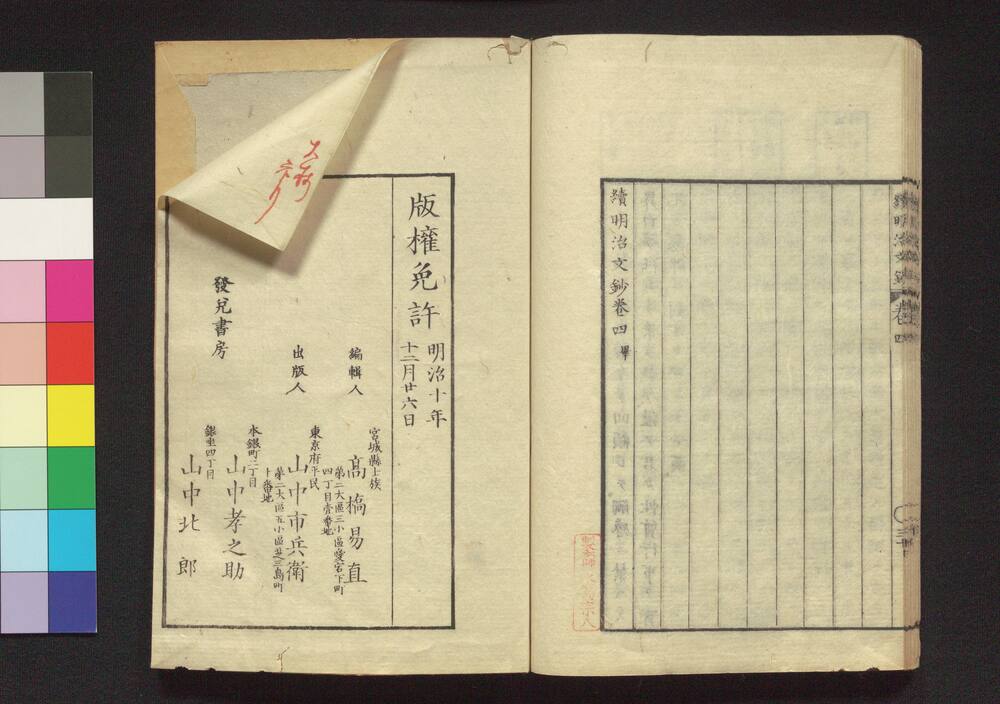 續明治文鈔卷四畢
續明治文鈔
卷四
版權免許
明治十年
十二月廿六日
編輯人
宮城縣士族
高橋易直
第二大區三小區愛宕下町
四丁目壹番地
出版人
東京府平民
山中市兵衛
第二大區五小區芝三島町
十番地
發兌書房
本銀町二丁目
山中孝之助
銀座四丁目
山中北郎